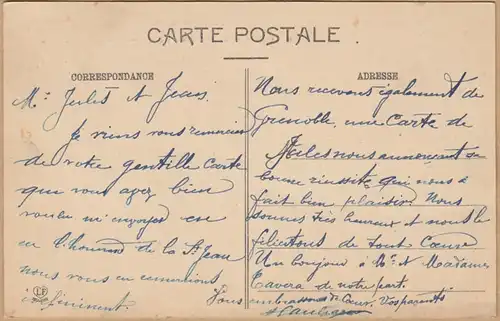 CARTE POSTALE.
CORRESPONDANCE
Mrs Jules et Jean
Je viens vous remercier
de votre gentille carte
que vous avez bien
voulu m'envoyer ce
en l'honneur de la St Jean
nous vous en remercions
infiniment. Vous
LF
ADRESSE
Nous recevons également de
Grenoble, une Carte de
Jules nous annonçant sa
bonne réussite qui nous a
fait bien plaisir. Nous
sommes très heureux et nous le
félicitons de tout Cœur
Un bonjour à Mr et Madame
Tavera de notre part.
embrassons de Cœur. Vos parents